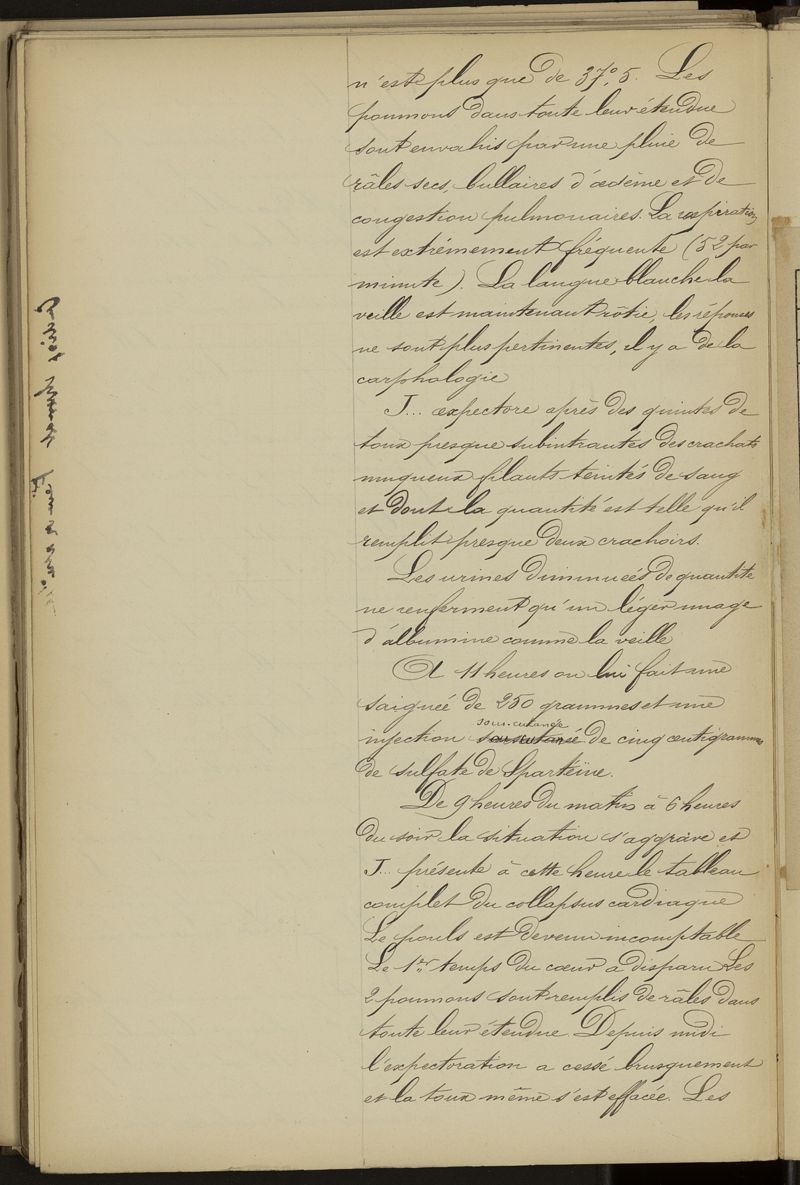 n'est plus que de 37°,5. Les
poumons dans toute leur étendue
sont envahis par une pluie de
râles secs, bullaires d'œdème et de
congestion pulmonaires. La respiration
est extrêmement fréquente (52 par
minute). La langue blanche la
veille est maintenant rôtie, les réponses
ne sont plus pertinentes, il y a de la
carphologie
J... expectore après des quintes de
toux presque subintrantes des crachats
muqueux filants teintés de sang
et dont la quantité est telle qu'il
remplit presque deux crachoirs.
Les urines diminuées de quantité
ne renferment qu'un léger nuage
d'albumine comme la veille
A 11 heures on lui fait une
saignée de 250 grammes et une
sous-cutanée
injection de cinq centigrammes
de sulfate de Spartéine.
De 9 heures du matin à 6 heures
du soir la situation s'aggrave et
J... présente à cette heure le tableau
complet du collapsus cardiaque
Le pouls est devenu incomptable
Le 1er temps du cœur a disparu Les
2 poumons sont remplis de râles dans
toute leur étendue. Depuis midi
l'expectoration a cessé brusquement
et la toux même s'est effacée. Les